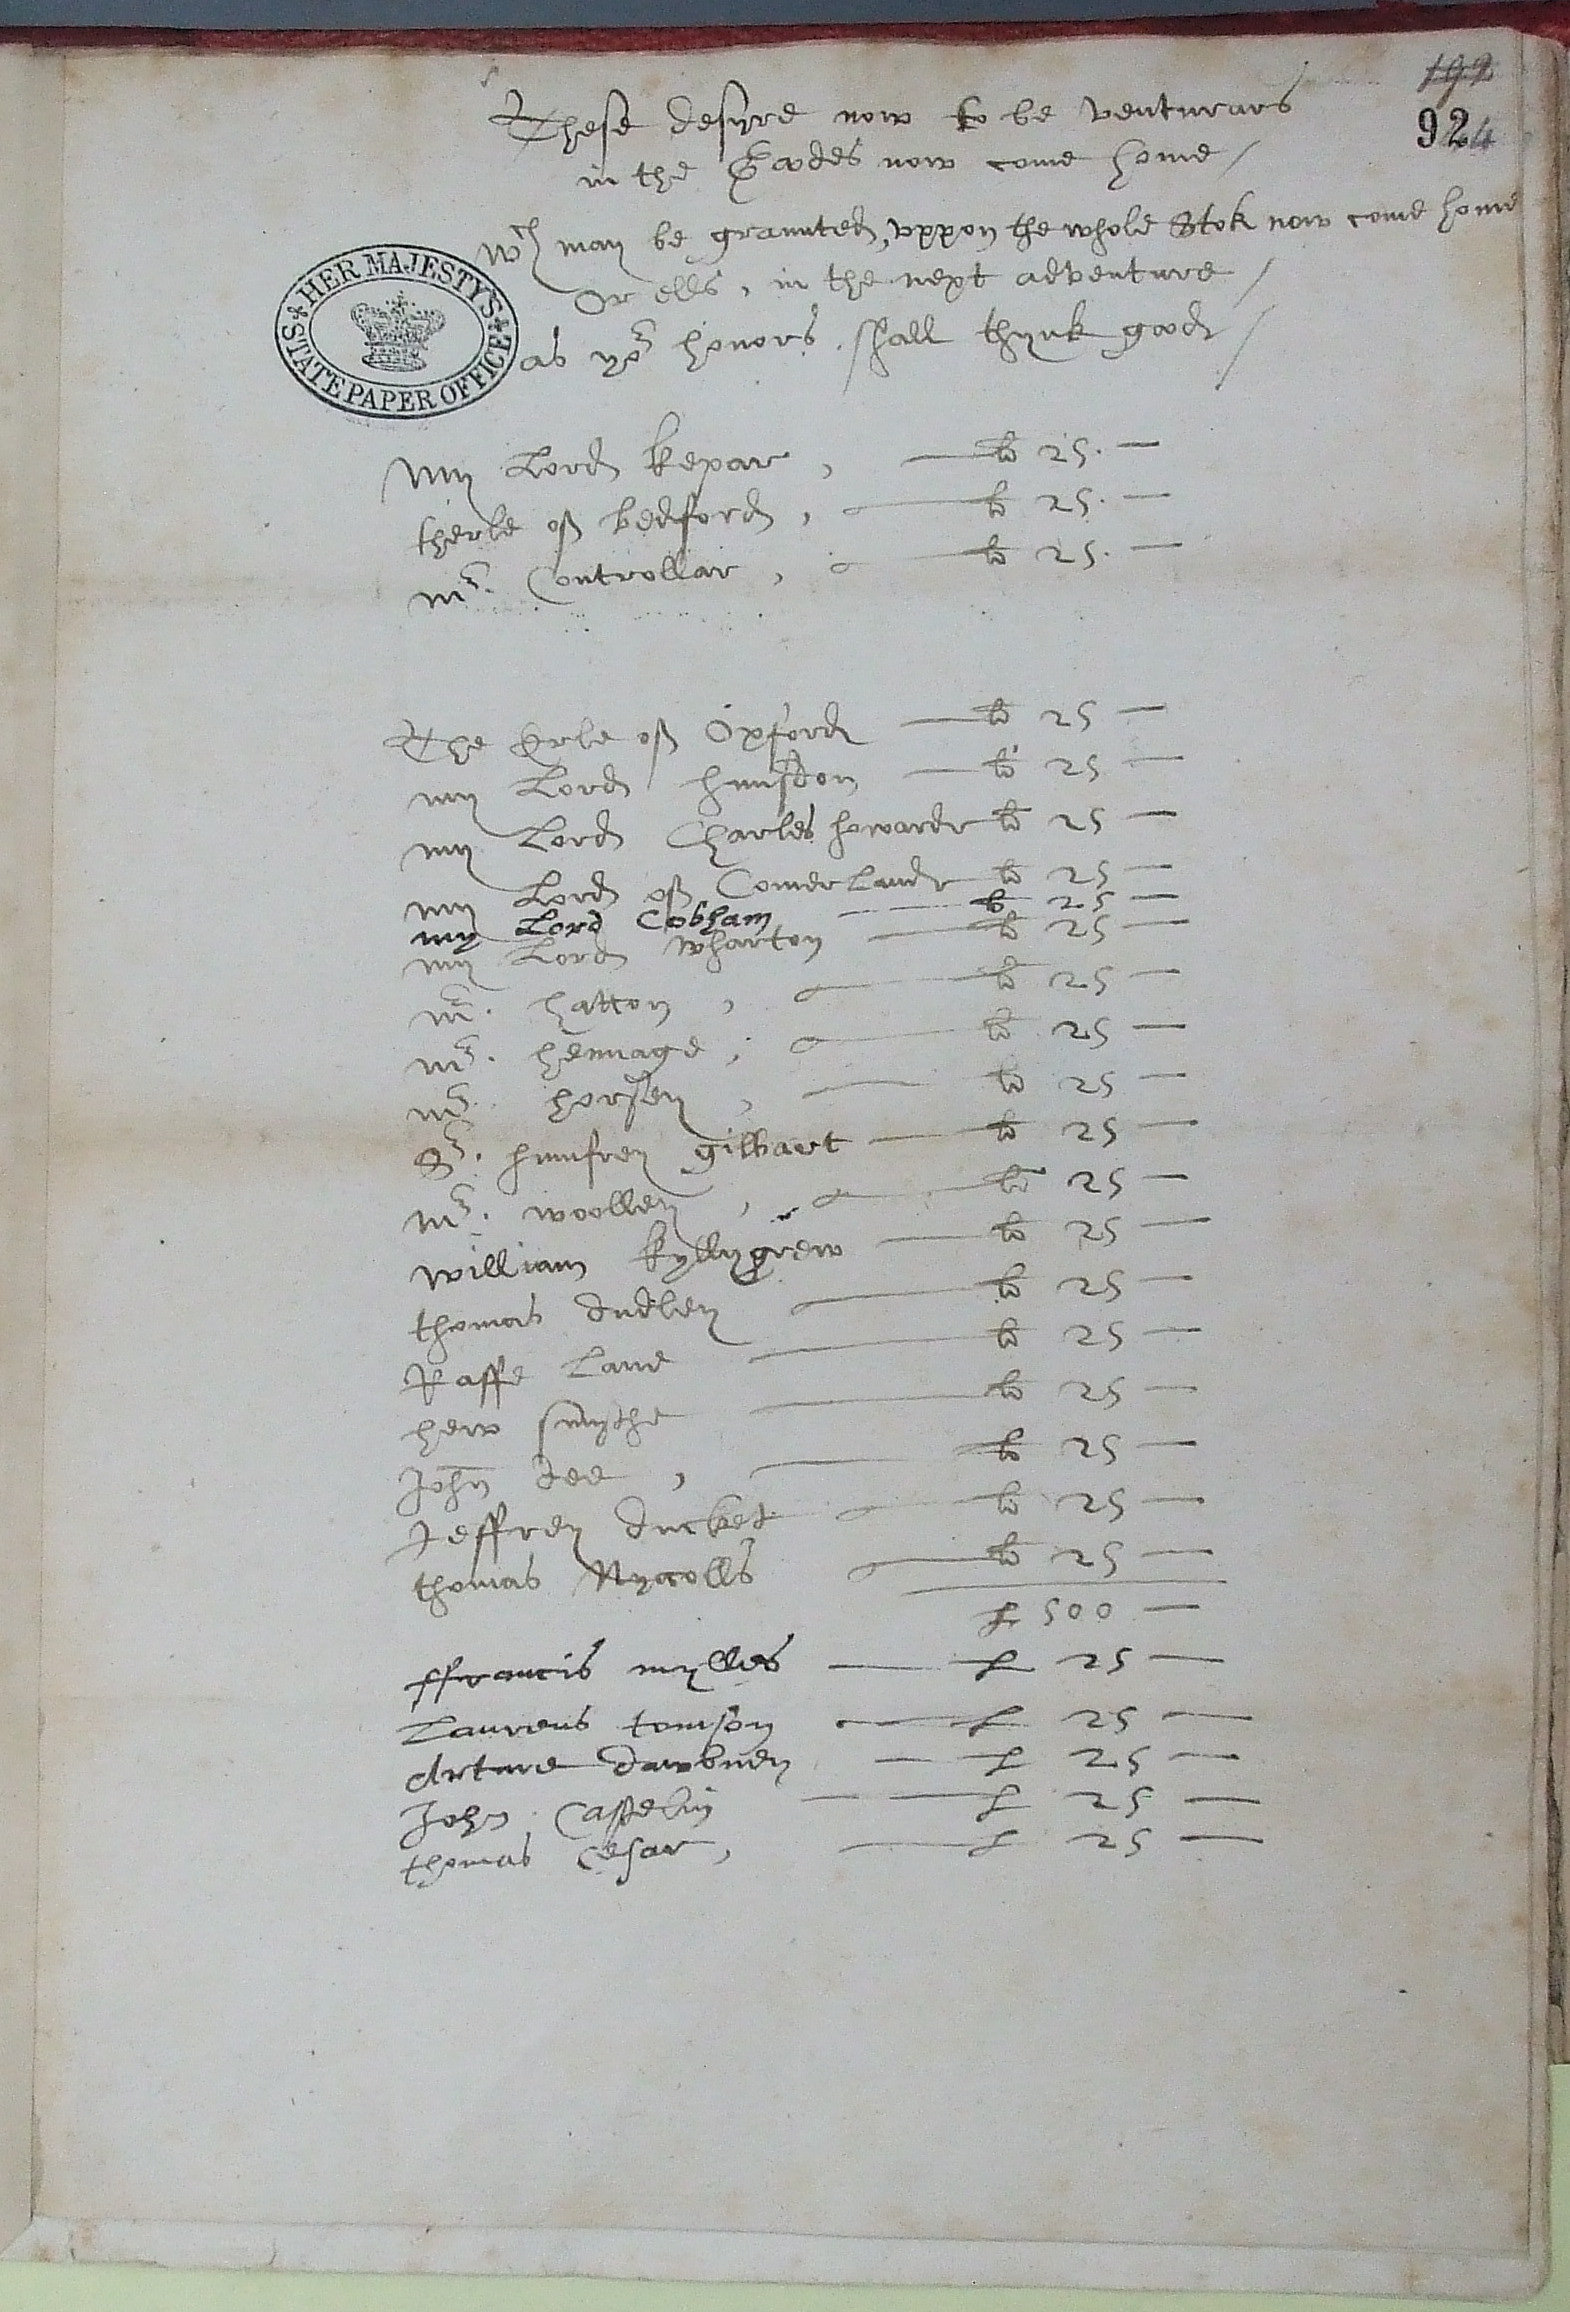 192
924
These desyre now to be venturars
in the Goodes now come home /
wch may be graunted, uppon the whole Stok now come home
Or ells, in the next adventure /
as yor honors shall thynk good /
HER MAJESTY'S STATE PAPER OFFICE
My Lord kepar, li 25.
therle of bedford, li 25.
mr. Controllar, li 25.
The Erle of Oxford li 25
my Lord hunsdon li 25
my Lord Charles howarde li 25
my Lord of Comerland li 25
my Lord Cobham li 25
my Lord wharton li 25
mr. hatton, li 25
mr. hennage, li 25
mr. horsey, li 25
Sr. humfrey gilbart li 25
mr. woolley, li 25
william kyllygrew li 25
thomas dudley li 25
Raffe Lane li 25
hew smythe li 25
John dee, li 25
Jeffrey ducket li 25
thomas Nycolls li 25
£ 500
ffrancis mylles £ 25
Laurens tomson £ 25
Arture dawbney £ 25
John Casselin £ 25
thomas Cesar, £ 25